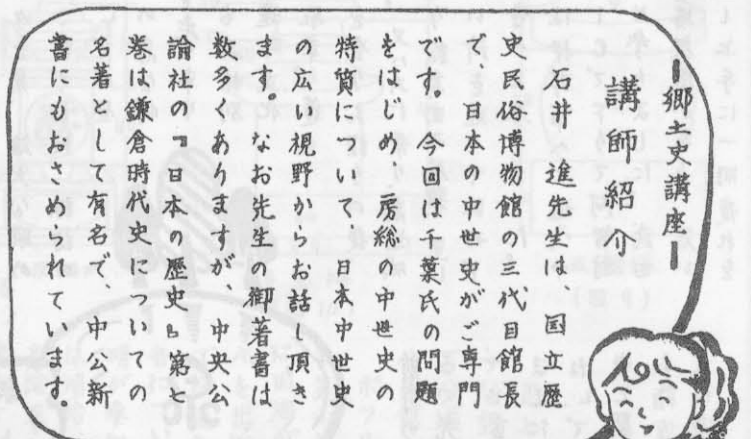 ＝郷土史講座＝
講師紹介
石井　進先生は、国立歴
史民俗博物館の三代目館長
で、日本の中世史がご専門
です。今回は千葉氏の問題
をはじめ、房総の中世史の
特質について、日本中世史
の広い視野からお話し頂き
ます。なお先生の御著書は
数多くありますが、中央公
論社の『日本の歴史』第七
巻は鎌倉時代史についての
名著として有名で、中公新
書にもおさめられています。